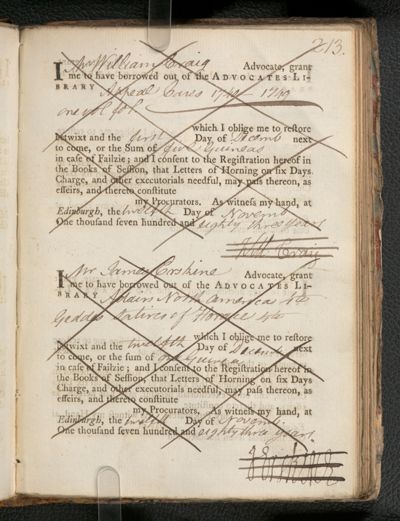 213.
I Mr William Craig Advocate, grant
me to have borrowed out of the ADVOCATES LI-
BRARY Appeal Cases 174 1749
one vol fol
betwixt and the first which I oblige me to reſtore
Day of Decemb next
to come, or the Sum of Guineas
in caſe of Failzie; and I conſent to the Regiſtration hereof in
the Books of Seſſion, that Letters of Horning on ſix Days
Charge, and other executorials needful, may paſs thereon, as
effeirs, and thereto conſtitute
my Procurators. As witneſs my hand, at
Edinburgh, the twelfth Day of Novemb
One thouſand ſeven hundred and eighty three years
Will Craig
I Mr James Erskine Advocate, grant
me to have borrowed out of the ADVOCATES LI-
BRARY Adairs North america 4to
Geddes Satires of Horace 4to
betwixt and the twelfth which I oblige me to reſtore
Day of Decemb next
to come, or the ſum of Guineas
in caſe of Failzie; and I conſent to the Regiſtration hereof in
the Books of Seſſion, that Letters of Horning on ſix Days
Charge, and other executorials needful, may paſs thereon, as
effeirs, and thereto conſtitute
my Procurators. As witneſs my hand, at
Edinburgh, the twelfth Day of Novemb
One thouſand ſeven hundred and eighty three years
J Erskine